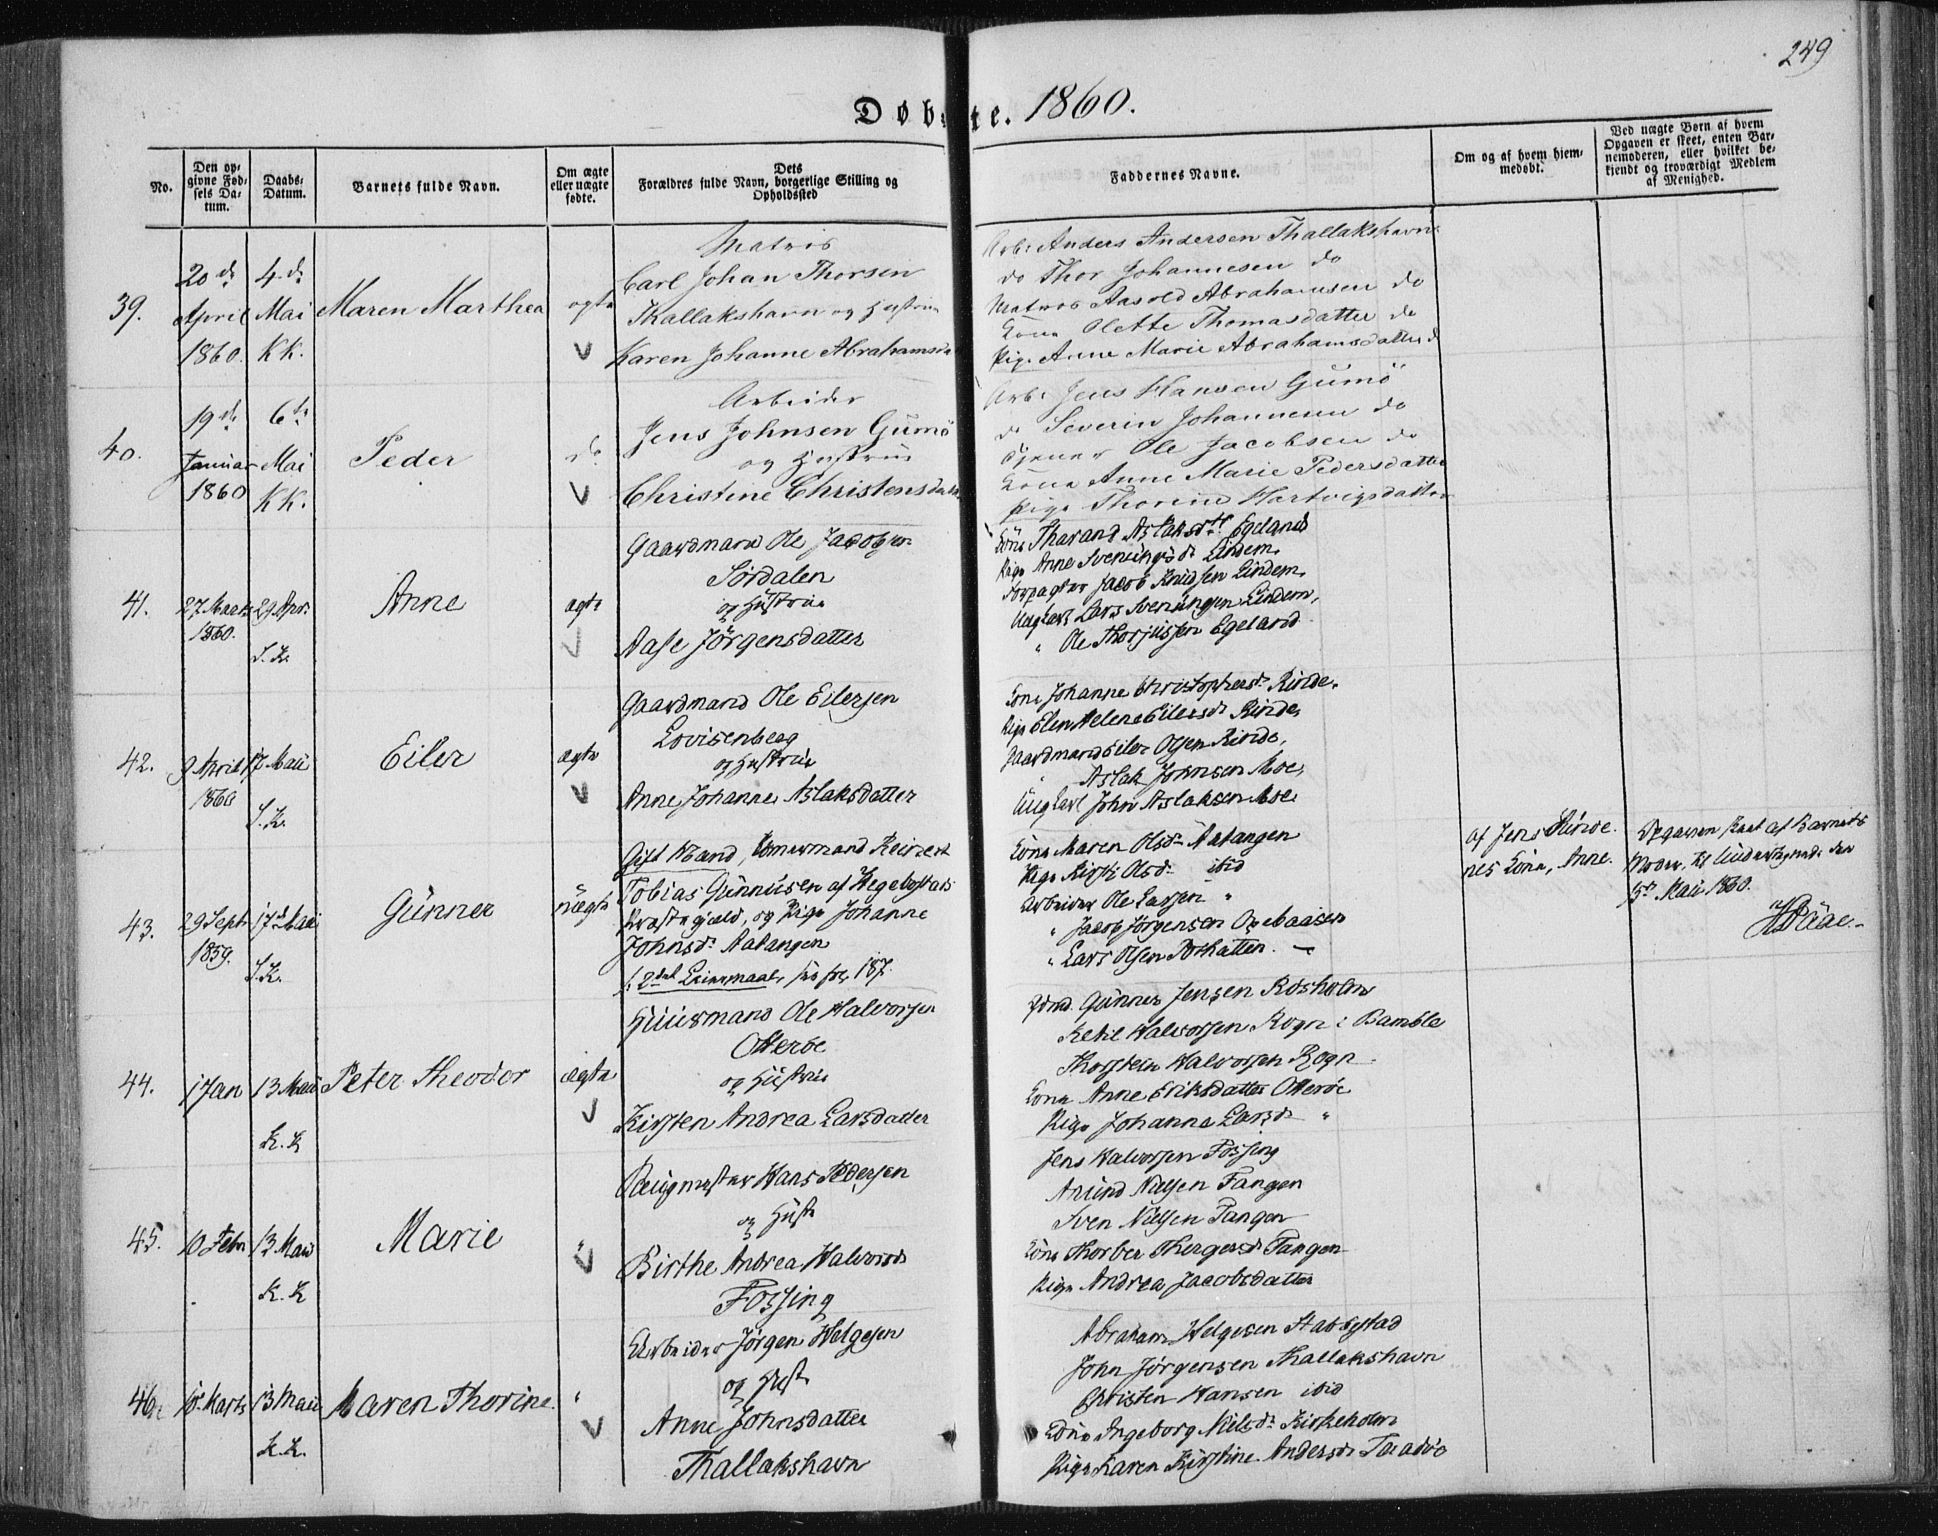 249
Døbte. 1860.
No.
Den opgivne Fødsels Datum.
Daabs-Datum.
Barnets fulde Navn.
Om ægte eller uægte fødte.
Dets Forældres fulde Navn, borgerlige Stilling og Opholdssted
Faddernes Navne.
Om og af hvem hjemmedøbt.
Ved uægte Børn af hvem Opgaven er skeet, enten Barnemoderen, eller hvilket bekjendt og troværdigt Medlem af Menighed.
39.
20de April 1860.
4de Mai KK.
Maren Marthea
ægte
Matros
Carl Johan Thorsen
Thallakshavn og Hustrue
Karen Johanne Abrahamsda
Arb: Anders Andersen Thallakshavn
do Thor Johannesen do
Matros Aasold Abrahamsen do
Kone Olette Thomasdatter do
Pige Anne Marie Abrahamsdatter d
40.
19de Januar 1860
6te Mai KK.
Peder
do
Arbeider
Jens Johnsen Gumö
og Hustrue
Christine Christensdatter
Arb: Jens Hansen Gumö
do Severin Johannesen do
Tjener Ole Jacobsen do
Kone Anne Marie Pedersdatter
Pige Thorine Hartvigsdatter
41.
27 Marts 1860.
29 April S.K.
Anne
ægte
Gaardmand Ole Jacobsen
Sördalen
og Hustrue
Aase Jörgensdatter
Kone Tharand Aslaksdtr Egeland
Pige Anne Sveningsd. Lindem.
Forpagter Jacob Knudsen Lindem.
Ungkarl Lars Sveningsen Lindem,
" Ole Thorjussen Egeland
42.
9 April 1860
17 Mai S.K.
Eiler
ægte
Gaardmand Ole Eilersen
Lovisenberg
og Hustrue
Anne Johanne Aslaksdatter
Kone Johanne Christophersd. Rinde.
Pige Elen Helene Eilersd. Rinde,
Gaardmand Eiler Olsen Rinde,
" Aslak Johnsen Moe,
Ungkarl John Aslaksen Moe
43.
29 Septr 1859.
17de Mai S.K.
Gunner
uægte
Gift Mand, Tömermand Reinert
Tobias Gunnusen af Hegebostads
Præstegjeld, og Pige Johanne
Johnsd. Aatangen
f. 2det Leiermaal, see fol. 187.
Kone Maren Olsd. Aatangen
Pige Kirsti Olsd. ibid
Arbeider Ole Larsen "
" Jacob Jörgensen
" Lars Olsen
af Jens
nes Kone, Anne.
Opgaven skeet af Barnets
Moder, til Undertegnede den
5te Mai 1860.
44.
1 Jan
13 Mai K.K
Peter Theodor
ægte
Huusmand Ole Halvorsen
Otteröe
og Hustrue
Kirsten Andrea Larsdatter
Gdmd. Gunner Jensen Rosholm
Ketil Halvorsen Rogn i Bamble
Thorsten Halvorsen Rogn
Kone Anne Eriksdatter Otteröe
Pige Johanne Larsd. "
45.
10 Febr
13 Mai K.K
Marie
"
Baugmester Hans Pedersen
og Hust.
Birthe Andrea Halvorsd.
Fossing
Jens Halvorsen Fossing
Amund Nielsen Tangen
Sven Nielsen Tangen
Kone Thorber Thergersd. Tangen
Pige Andrea Jacobsdatter
46.
18 Marts
13 Mai K.K.
Maren Thorine
"
Arbeider Jörgen Helgesen
og Hust.
Anne Johnsdatter
Thallakshavn
Abraham Helgesen Stabbestad
John Jörgensen Thallakshavn
Christen Hansen ibid
Kone Ingeborg Nilsd. Kirkeholm
Pige Karen Kirstine Andersd.